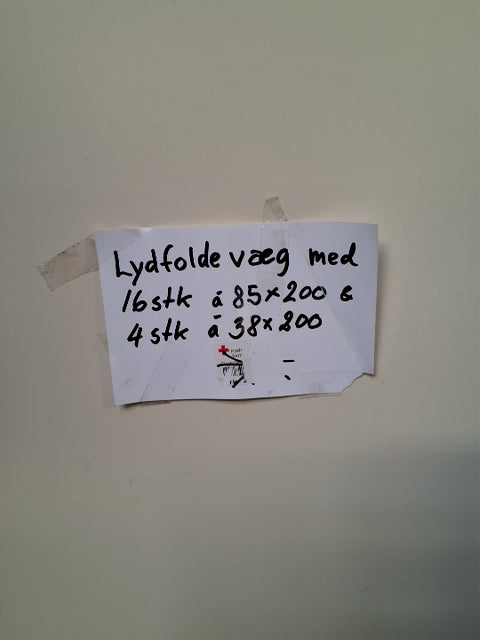 Lydfolde væg med
16 stk á 85×200 &
4 stk á 38×200